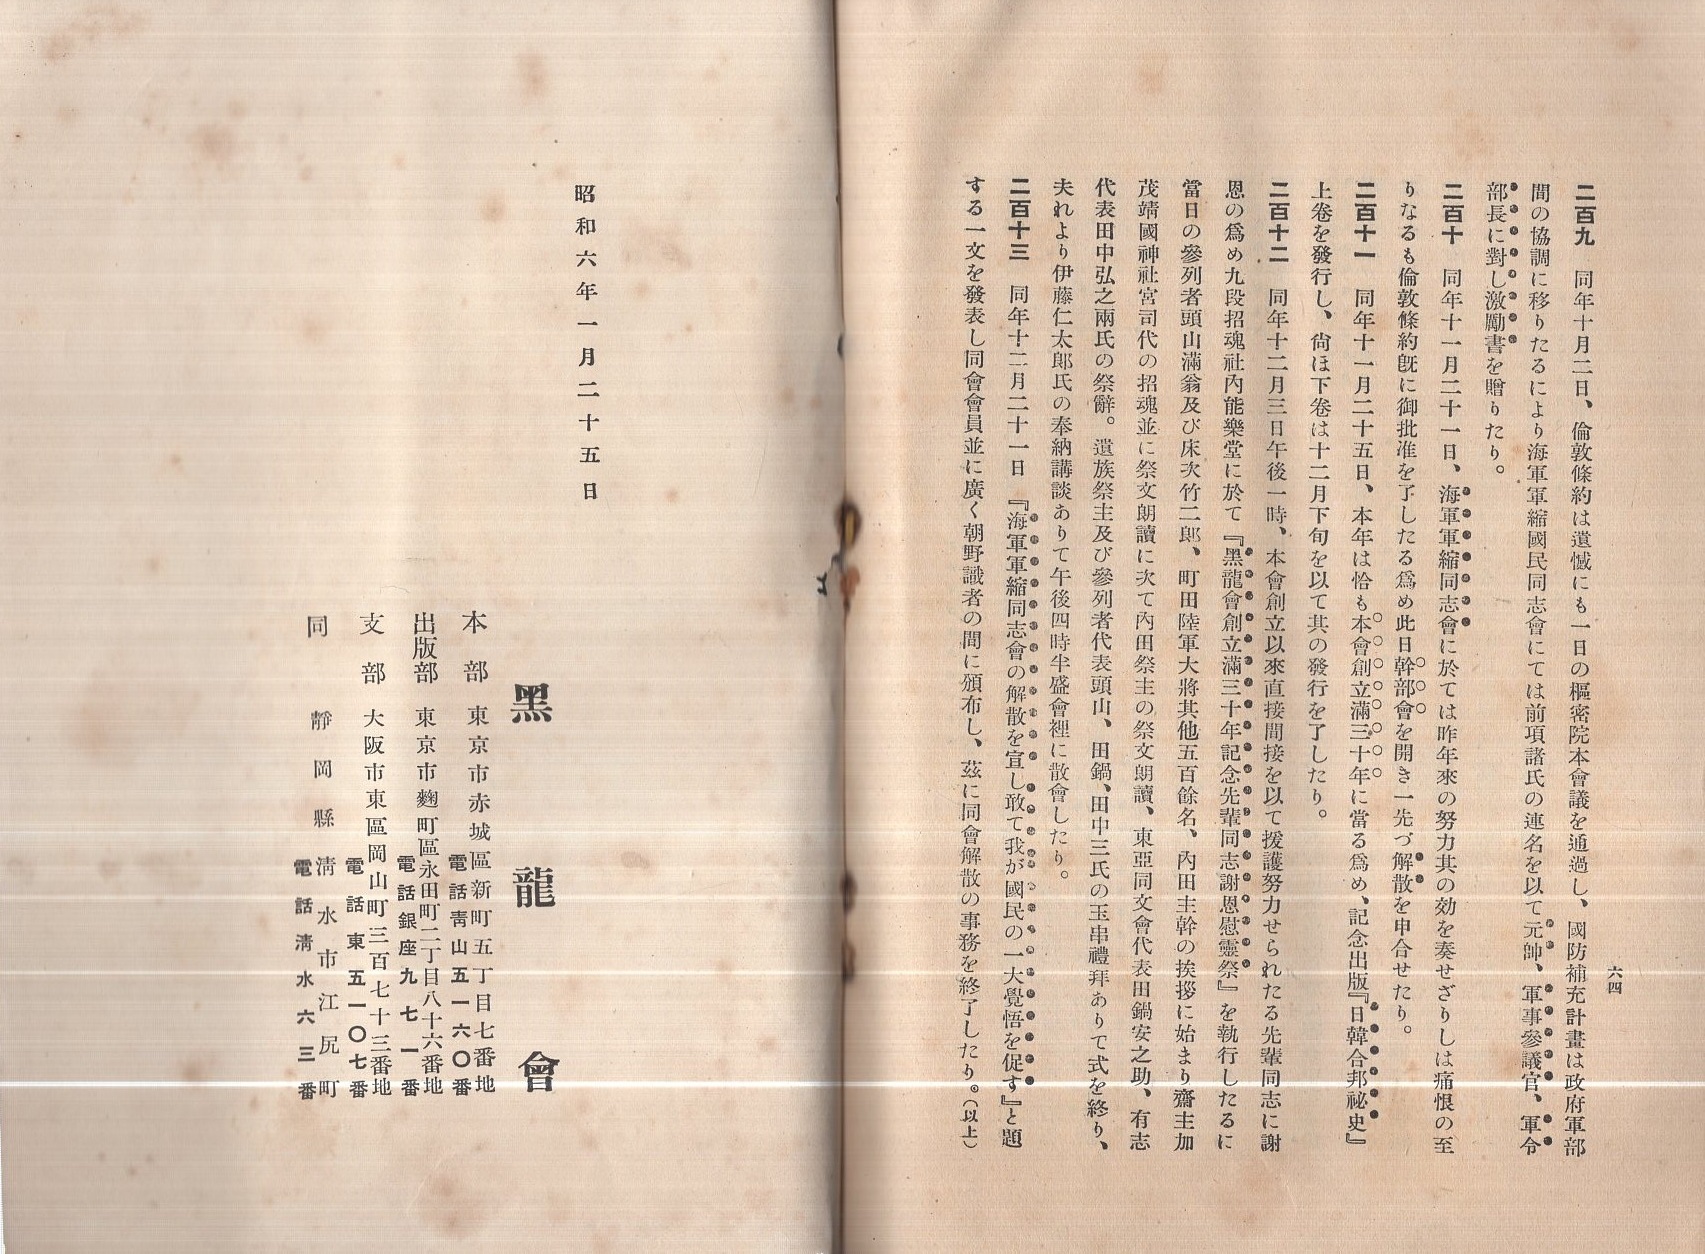 六四
二百九　同年十月二日、倫敦條約は遺憾にも一日の樞密院本會議を通過し、國防補充計畫は政府軍部
間の協調に移りたるにより海軍軍縮國民同志會にては前項諸氏の連名を以て元帥、軍事參議官、軍令
部長に對し激勵書を贈りたり。
二百十　同年十一月二十一日、海軍軍縮同志會に於ては昨年來の努力其の効を奏せざりしは痛恨の至
りなるも倫敦條約旣に御批准を了したる爲め此日幹部會を開き一先づ解散を申合せたり。
二百十一　同年十一月二十五日、本年は恰も本會創立滿三十年に當る爲め、記念出版『日韓合邦祕史』
上卷を發行し、尙ほ下卷は十二月下旬を以て其の發行を了したり。
二百十二　同年十二月三日午後一時、本會創立以來直接間接を以て援護努力せられたる先輩同志に謝
恩の爲め九段招魂社內能樂堂に於て『黑龍會創立滿三十年記念先輩同志謝恩慰靈祭』を執行したるに
當日の參列者頭山滿翁及び床次竹二郞、町田陸軍大將其他五百餘名、內田主幹の挨拶に始まり齋主加
茂靖國神社宮司代の招魂並に祭文朗讀に次て內田祭主の祭文朗讀、東亞同文會代表田鍋安之助、有志
代表田中弘之兩氏の祭辭。遺族祭主及び參列者代表頭山、田鍋、田中三氏の玉串禮拜ありて式を終り、
夫れより伊藤仁太郞氏の奉納講談ありて午後四時半盛會裡に散會したり。
二百十三　同年十二月二十一日『海軍軍縮同志會の解散を宣し敢て我が國民の一大覺悟を促す』と題
する一文を發表し同會會員並に廣く朝野識者の間に頒布し、茲に同會解散の事務を終了したり。（以上）
昭和六年一月二十五日
黑龍會
本部　東京市赤城區新町五丁目七番地
電話靑山五一六〇番
出版部　東京市麴町區永田町二丁目八十六番地
電話銀座九七一番
支部　大阪市東區岡山町三百七十三番地
電話東五一〇七番
同　靜岡縣淸水市江尻町
電話淸水六三番